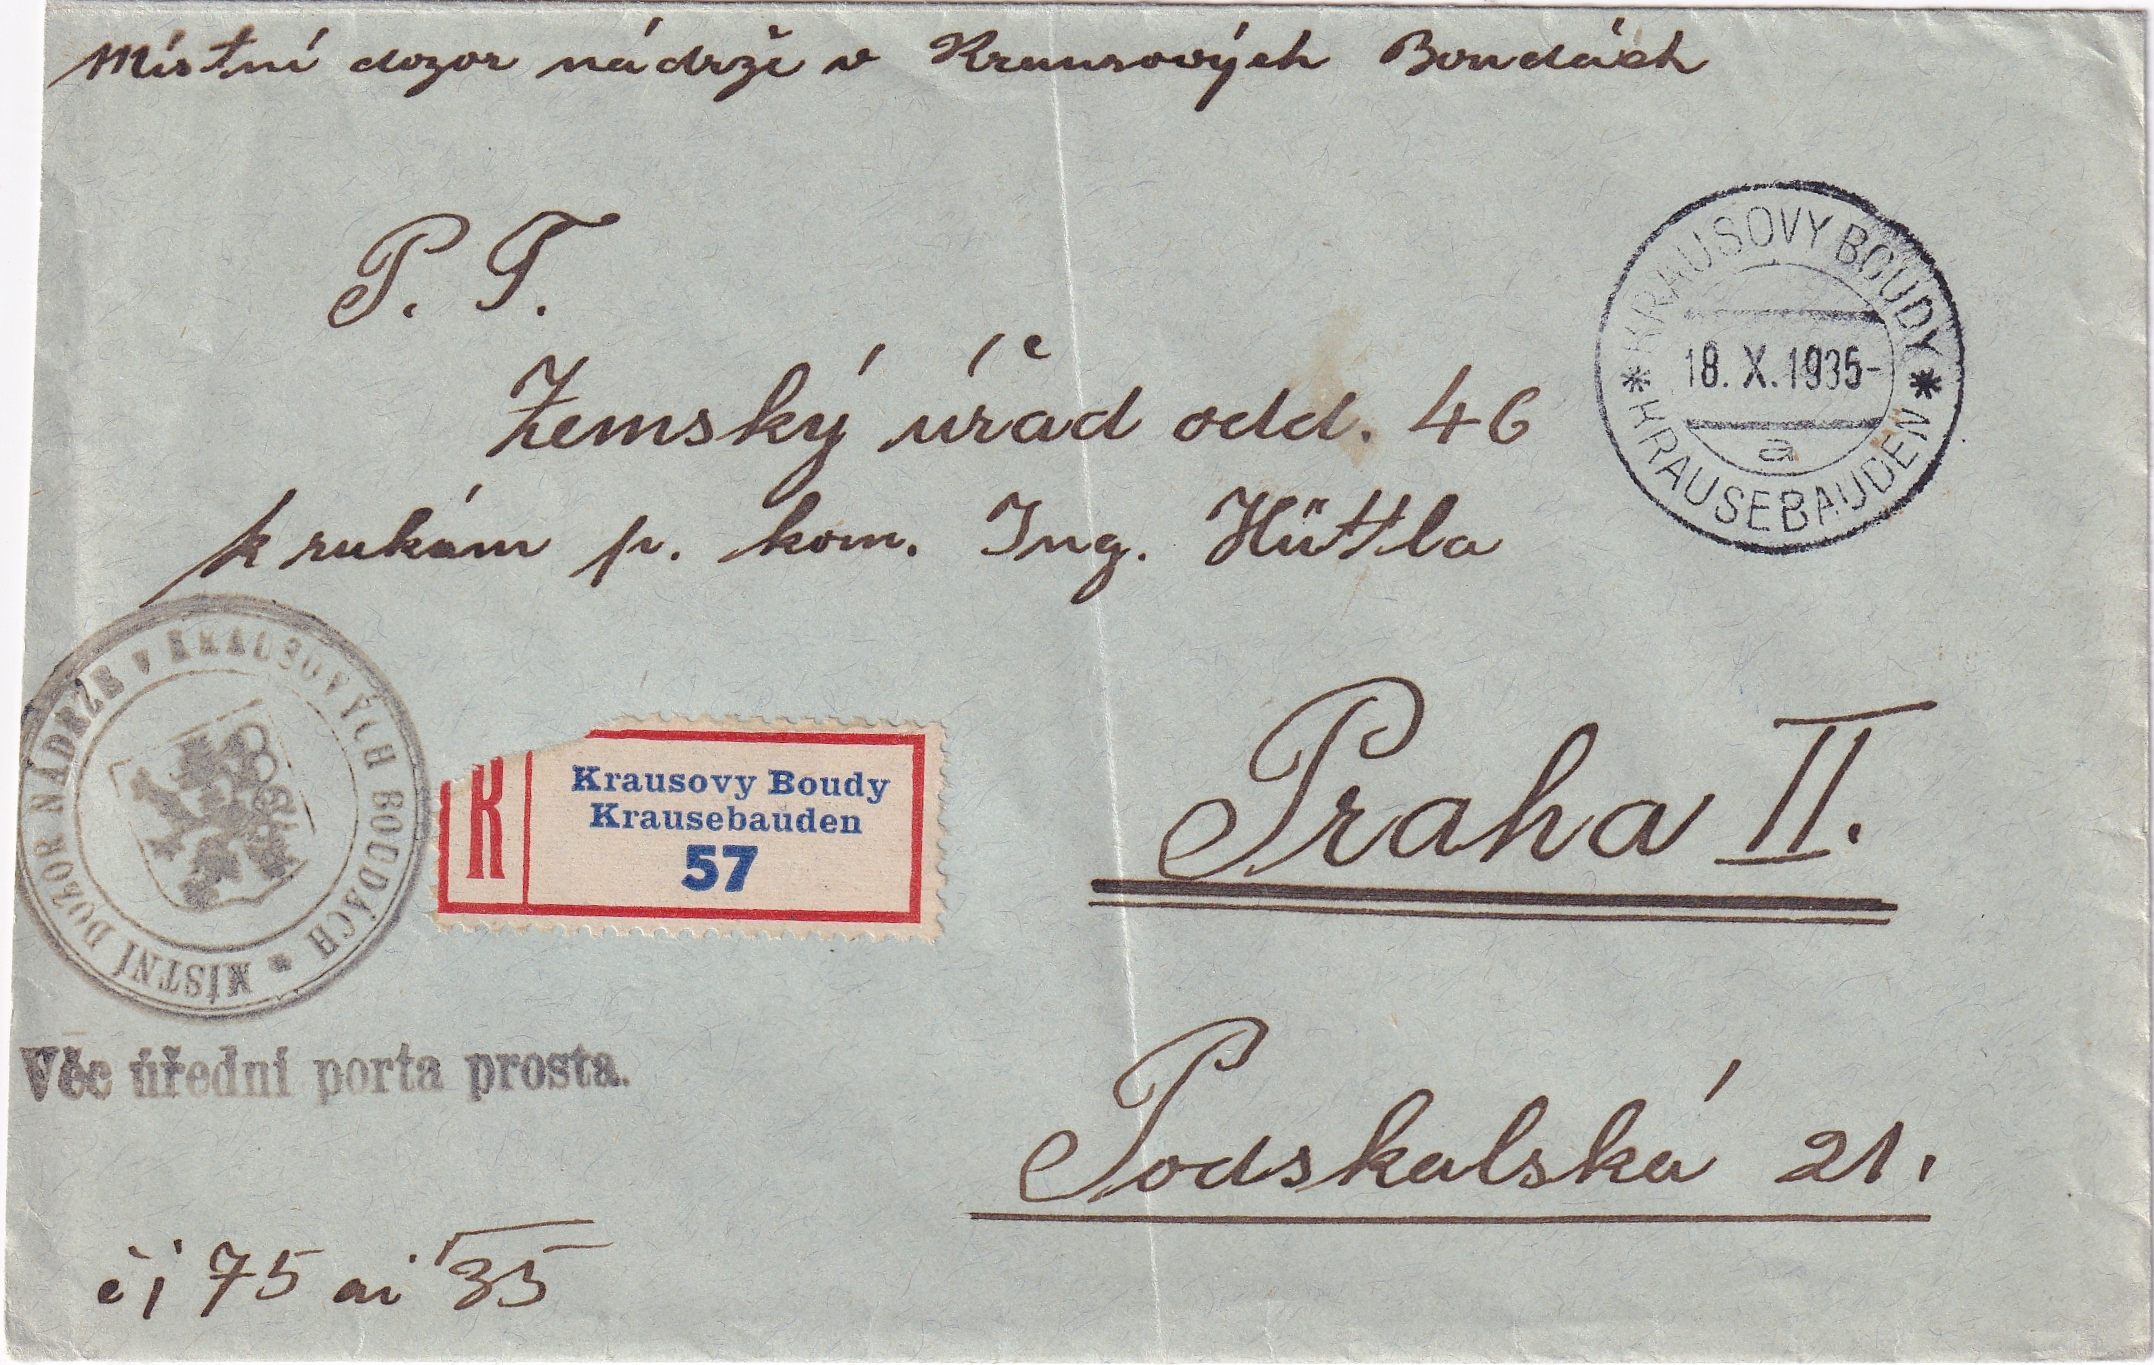 Místní dozor nádrže v Krausových Boudách
P. T.
Zemský úřad odd. 46
k rukám p. kom. Ing. Hüttla
KRAUSOVY BOUDY
18. X. 1935-
a
KRAUSEBAUDEN
MÍSTNÍ DOZOR NÁDRŽE V KRAUSOVÝCH BOUDÁCH
R
Krausovy Boudy
Krausebauden
57
Praha II.
Věc úřední porta prosta.
Podskalská 21.
čj 75 ai 35